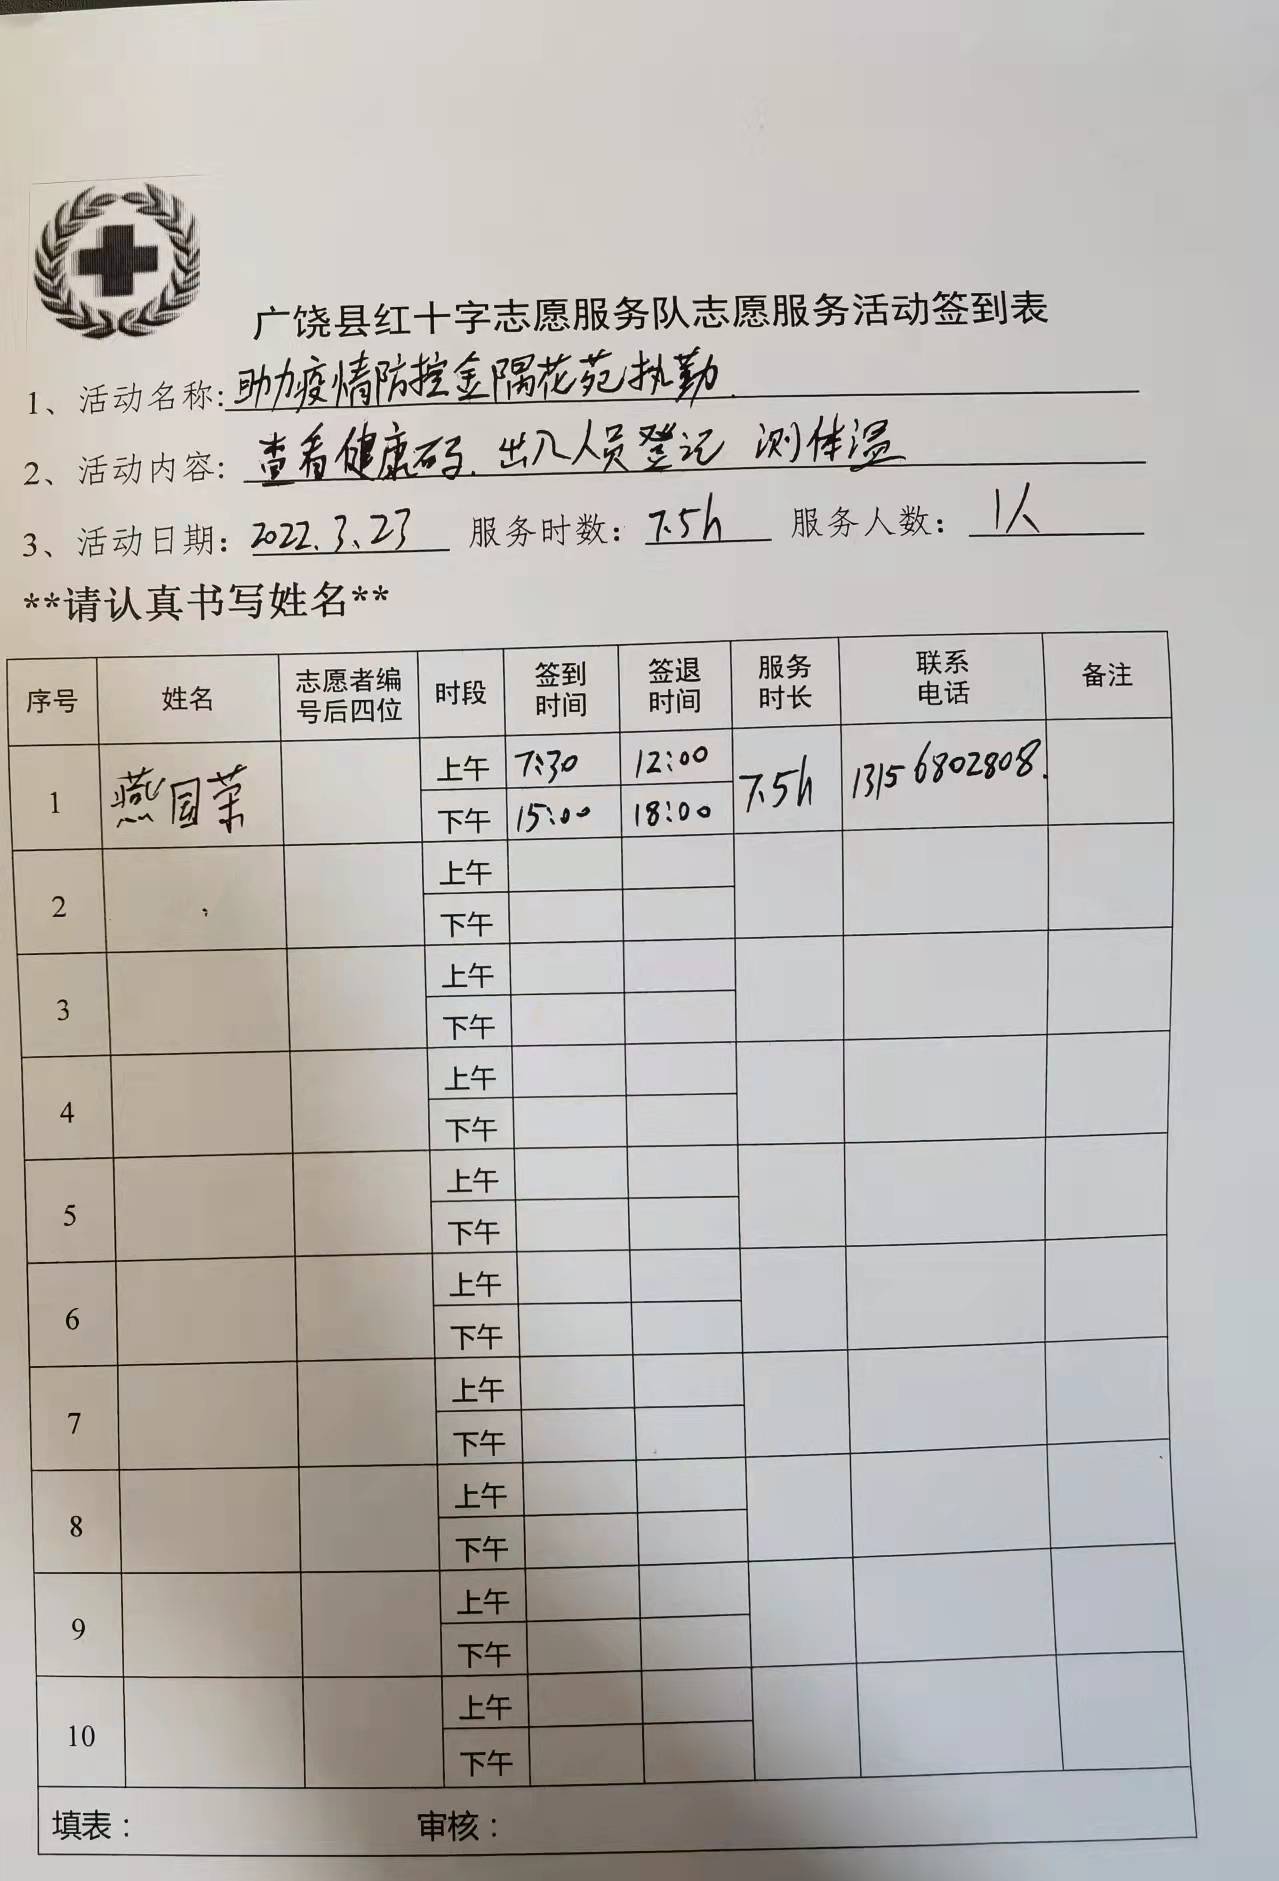 广饶县红十字志愿服务队志愿服务活动签到表
1、活动名称:助力疫情防控金隅花苑执勤.
2、活动内容:查看健康码.出入人员登记 测体温
3、活动日期:2022.3.23 服务时数:7.5h 服务人数:1人
**请认真书写姓名**
序号 姓名 志愿者编号后四位 时段 签到时间 签退时间 服务时长 联系电话 备注
1 燕国荣 上午 7:30 12:00 7.5h 13156802808.
下午 15:00 18:00
2 上午
下午
3 上午
下午
4 上午
下午
5 上午
下午
6 上午
下午
7 上午
下午
8 上午
下午
9 上午
下午
10 上午
下午
填表: 审核: